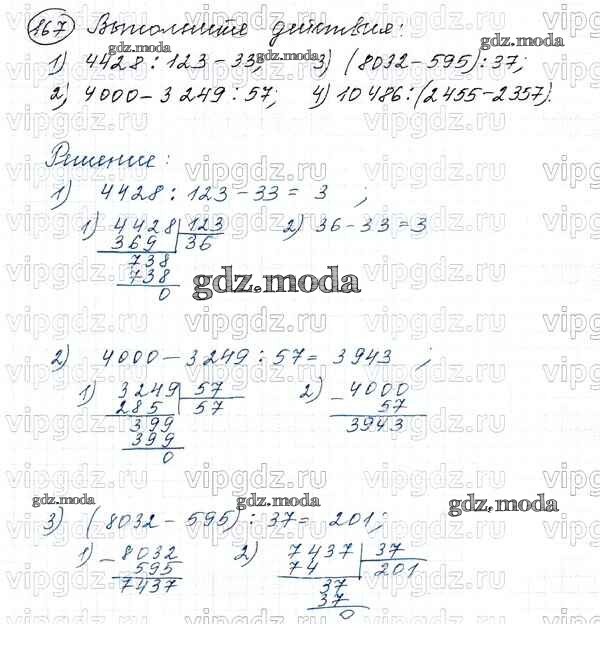 167 Выполните действия:
gdz.moda gdz.moda
1) 4428 : 123 - 33; 3) (8032 - 595) : 37;
2) 4000 - 3249 : 57; 4) 10486 : (2455 - 2357).
Решение:
1) 4428 : 123 - 33 = 3 ;
1) 4428 | 123 2) 36 - 33 = 3
369 | 36
738
738
0
gdz.moda
2) 4000 - 3249 : 57 = 3943 ;
1) 3249 | 57 2) - 4000
285 | 57 57
399 3943
399
0
gdz.moda gdz.moda gdz.moda
3) (8032 - 595) : 37 = 201;
1) - 8032 2) 7437 | 37
595 74 | 201
7437 37
37
0
vipgdz.ru vipgdz.ru vipgdz.ru